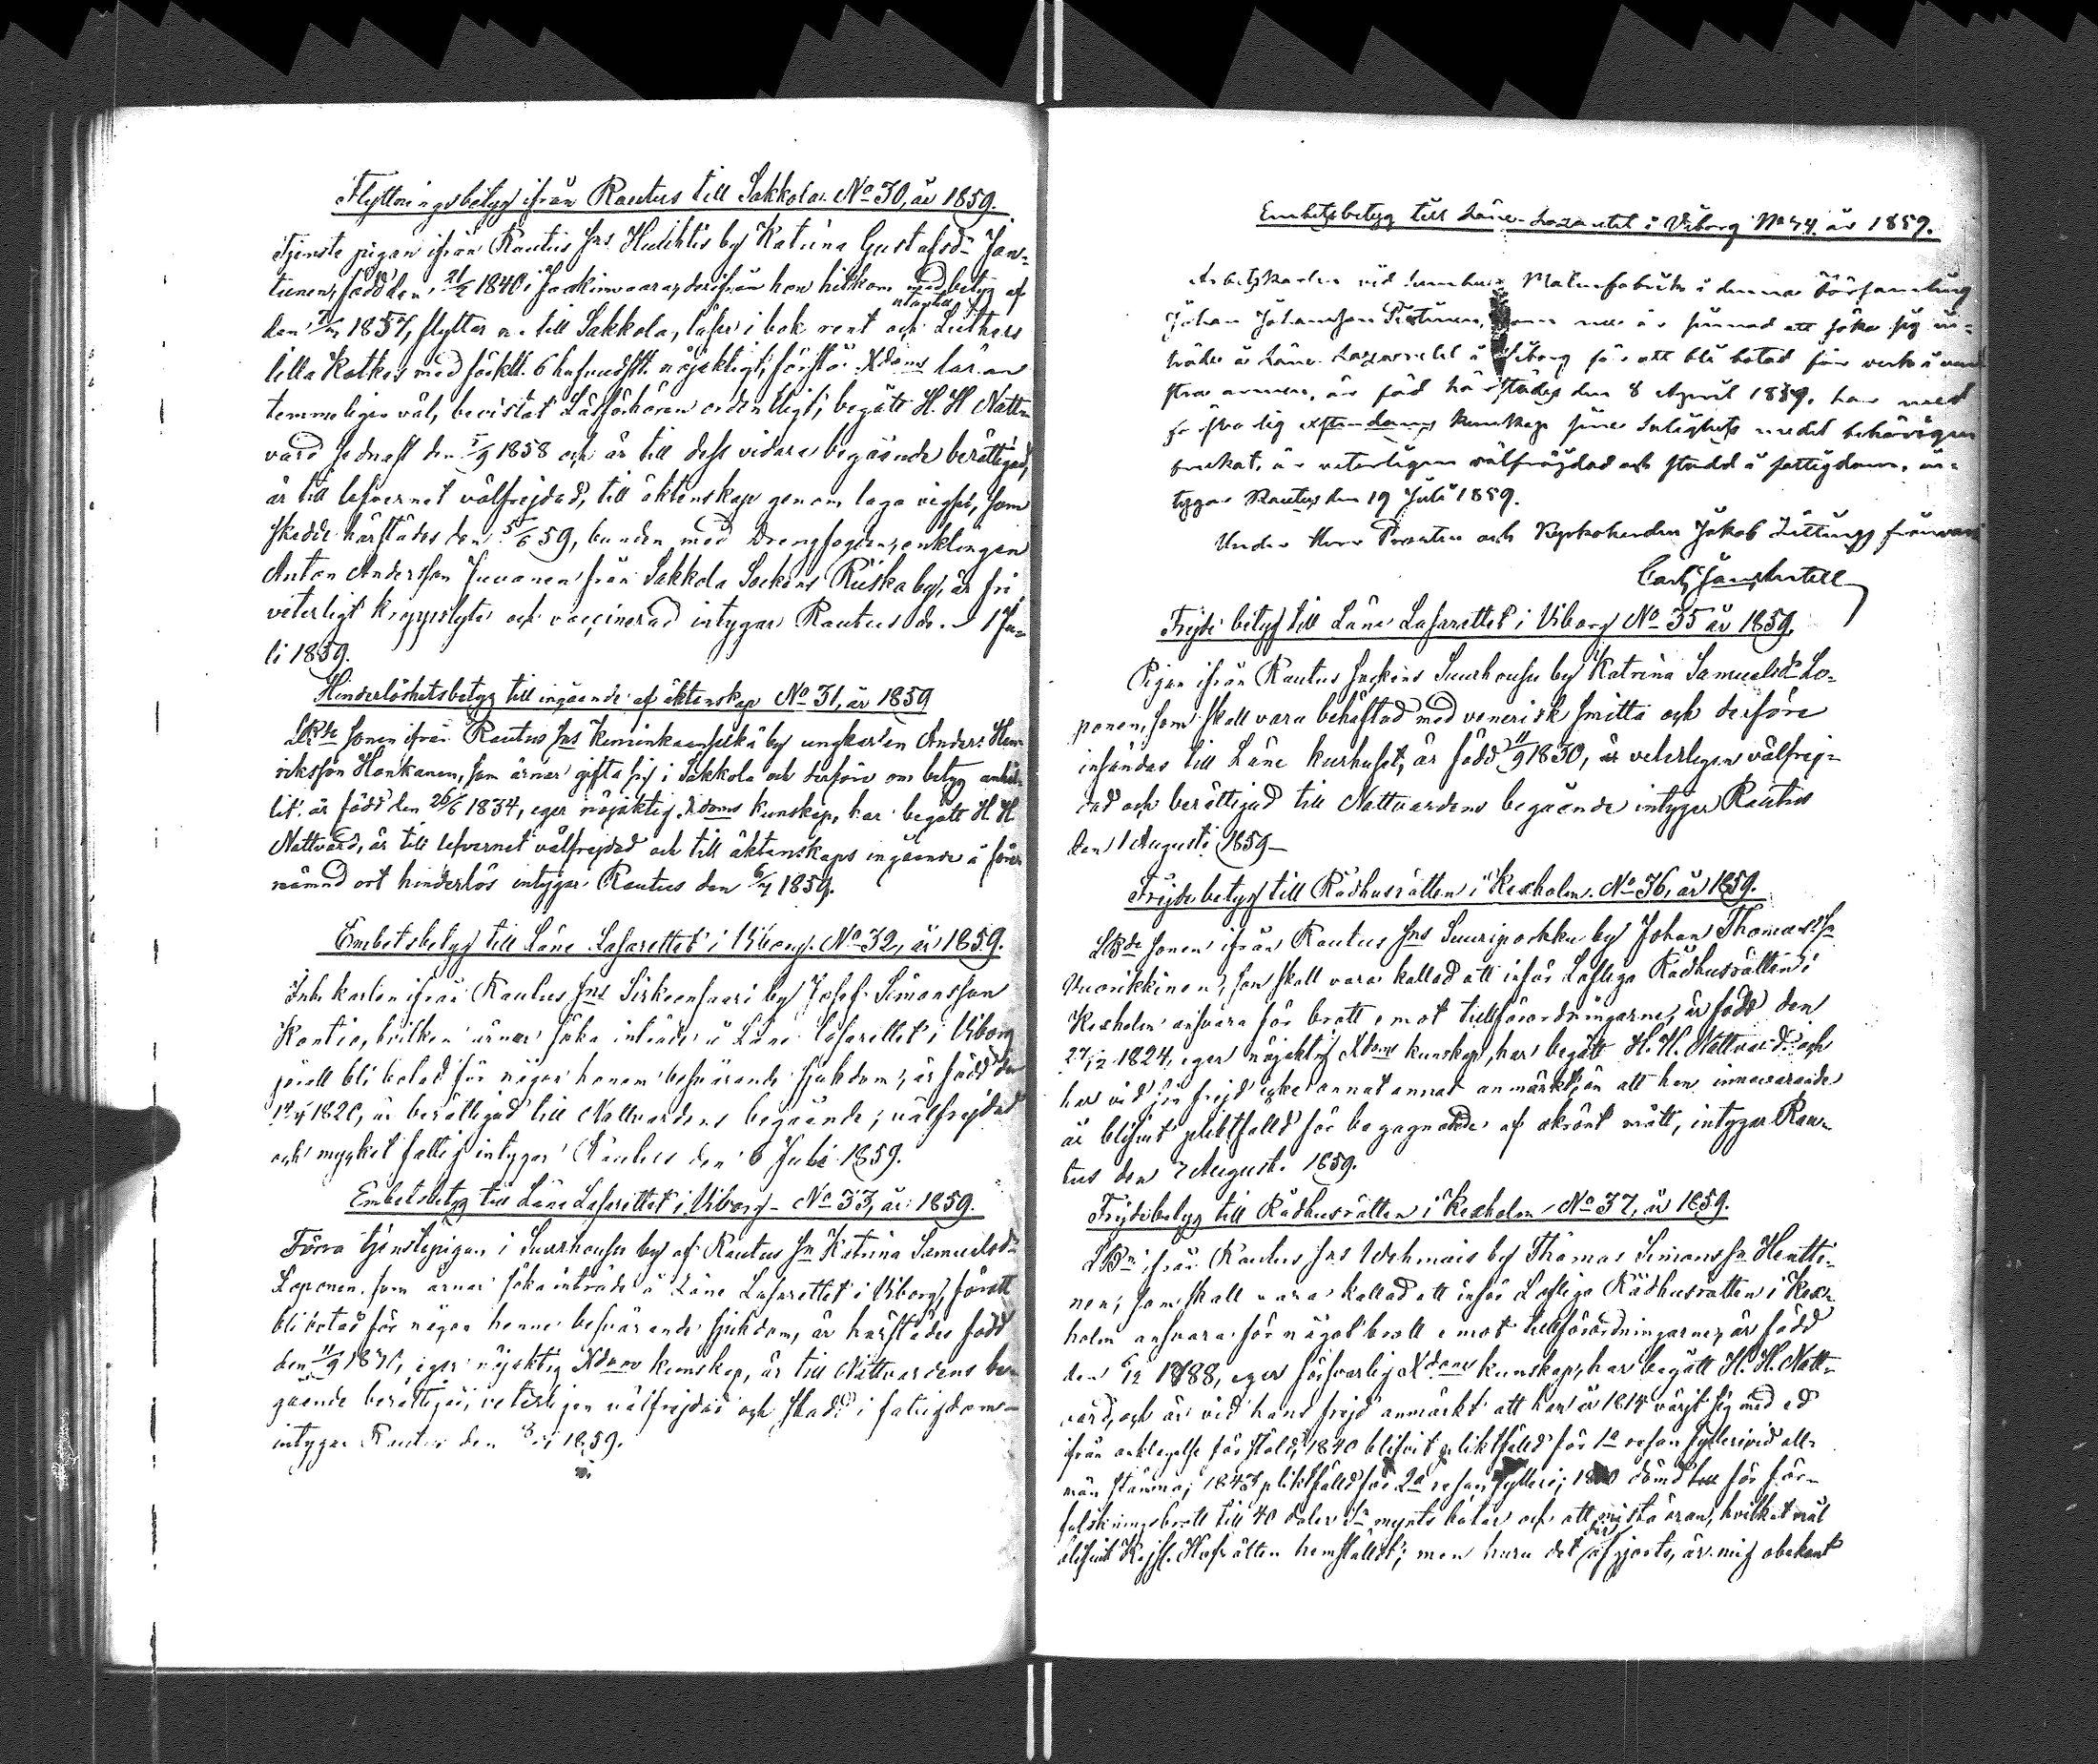 Flyttningsbetyg ifrån Rautus till Sakkola No 30, år 1859.
Tjenste pigan ifrån Rautus Sns Huhtis by Katrina Gustafsdr Jan-
tunen, född den 21/2 1840 i Jaakimvaara, derifrån hon hitkom med betyg af
den 1857, flyttar nu till Sakkola, läser i bok rent och Luthers
lilla Katkes med förkl. 6 hufvudst. nöjaktigt, förstår Xdoms läran
temmeligen väl, bevistat Läsförhören ordentligt, begått H. H Natt-
vard sednast den 5/9 1858 och är till dess vidare begående berättigad,
är till lefvernet välfrejdad, till äktenskap genom laga vigsel, som
skedde härstädes den 5/6 59, bunden med Drengsogden, enklingen
Anton Andersson Juvonen från Sakkola Sockens Riiska by, är fri
veterligt kroppslyte och vaccinerad intygar Rautus den 1 Ju-
li 1859.
Hinderlöshetsbetyg till ingående af äktenskap No 31, år 1859
LBde sonen ifrån Rautus Sns Keminkaanselkä by ungkarlen Anders Hen-
riksson Honkanen, som ärnar gifta sig i Sakkola och derföre om betyg anhål-
lit. är född den 26/6 1834, eger nöjaktig Xdoms kunskap, har begått H H
Nattvard, är till lefvernet välfrejdad och till äktenskaps ingående å före-
nämnd ort hinderlös intygar Rautus den 6/7 1859.
Embetsbetyg till Läne Lasarettet i Viborg No 32, år 1859.
Inh. karlen ifrån Rautus Sns Sirkeensaari by Josef Simonsson
Kontio, hvilken ärnar söka inträde å Läne Lasarettet i Viborg
för att bli botad för någon honom besvärande sjukdom, är född den
1820, är berättigad till Nattvardens begående; välfrejdad
och mycket fattig intygar Rautus den 6 Juli 1859.
Embetsbetyg till Läne Lasarettet i Viborg No 33, år 1859.
Förra tjenstepigan i Suurhousu by af Rautus Sn Katrina Samuelsdr
Loponen, som ärnar söka inträde å Läne Lasarettet i Viborg, för att
bli botad för någon henne besvärande sjukdom, är härstädes född
den 11/9 eger nöjaktig Xdoms kunskap, är till Nattvardens be-
gående berättigad, veterligen välfrejdad och stadd i fattigdom
intygar Rautus den 1859.
Embetsbetyg till Läne-Lazarettet i Viborg No 34 år 1859.
Arbetskarlen vid fabrik i denna Församling
Johan Johansson som nu är sinnad att söka sig in-
träde å Läne Lazarettet i Viborg för att bli botad för verk i ven-
stra armen, är född härstädes den 8 April har med
försvarlig Xstendoms kunskap sine salighets medel behörigen
brukat, är veterligen välfrejdad och stadd i fattigdom, in-
tygar Rautus den 19 Juli 1859.
Under Herr Prosten och Kyrkoherden Jakob frånvaro
Carl
Frejde betyg till Läne Lasarettet i Viborg No 35 år 1859.
Pigan ifrån Rautus Sockens Suurhousu by Katrina Samuelsdr Lo-
ponen, som skall vara behäftad med venerisk smitta och derföre
insändas till Läne kurhuset, är född 11/9 1830, är veterligen välfrej-
dad och berättigad till Nattvardens begående intygar Rautus
den 1 Augusti 1859
Frejdebetyg till Rådhusrätten i Kexholm No 36, år 1859.
LBde sonen ifrån Rautus Sns Suuriporkku by Johan Thomass:n
Vuorikkinen, som skall vara kallad att inför Loflige Rådhusrätten i
Kexholm ansvara för brott emot tullförordningarne, är född den
27/12 1824, eger nöjaktig Xdoms kunskap, har begått H. H. Nattvard och
har vid sin frejd icke annat annat anmärkt, än att han innevarande
år blifvit pliktfälld för begagnande af okrönt mått, intygar Rau-
tus den 2 Augusti 1859.
Frejdebetyg till Rådhusrätten i Kexholm No 37, år 1859.
LBn ifrån Rautus Sns Wehmais by Thomas Simonss:n Hentti-
nen, som skall vara kallad att inför Loflige Rådhusrätten i Kex-
holm ansvara för något brott emot tullförordningarne, är född
den 1788, eger försvarlig Xdoms kunskap, har begått H. H. Natt-
vard, och är vid hans frejd anmärkt att han år 1815 värjt sig med ed
ifrån anklagelse för stöld, 1840 blifvit pliktfälld för 1a resan fylleri vid all-
män stämma; pliktfälld för 2a resan fylleri; dömd till för för-
falskningsbrott till 40 daler s:r mynts böter och att mista äran, hvilket mål
blifvit Kejs. Hofrätten hemstäldt; men huru det der afgjorts, är mig obekant